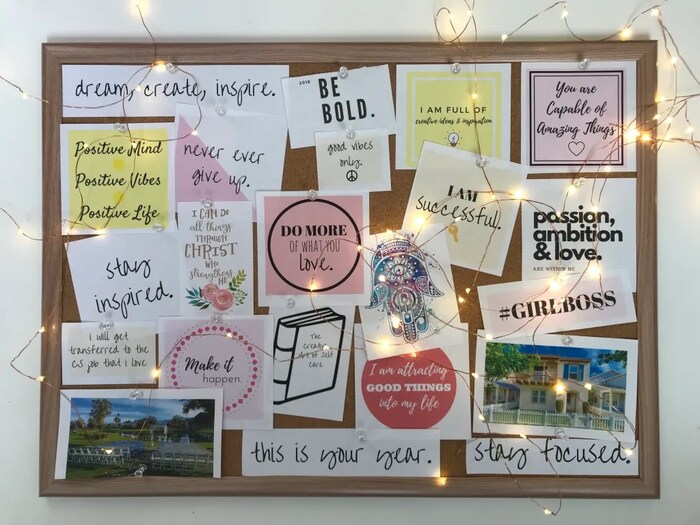 dream, create, inspire.
2018
BE
BOLD.
I AM FULL OF
creative ideas & inspiration
You are
Capable of
Amazing Things
Positive Mind
Positive Vibes
Positive Life
never ever
give up.
good vibes
only.
I AM
successful.
passion,
ambition
& love.
ARE WITHIN ME
I CAN DO
all things
THROUGH
CHRIST
WHO
strengthens
ME
DO MORE
OF WHAT YOU
love.
stay
inspired.
#GIRLBOSS
I will get
transferred to the
CS job that I love
Make it
happen.
The
art of self
care
I am attracting
GOOD THINGS
into my life
this is your year.
stay focused.